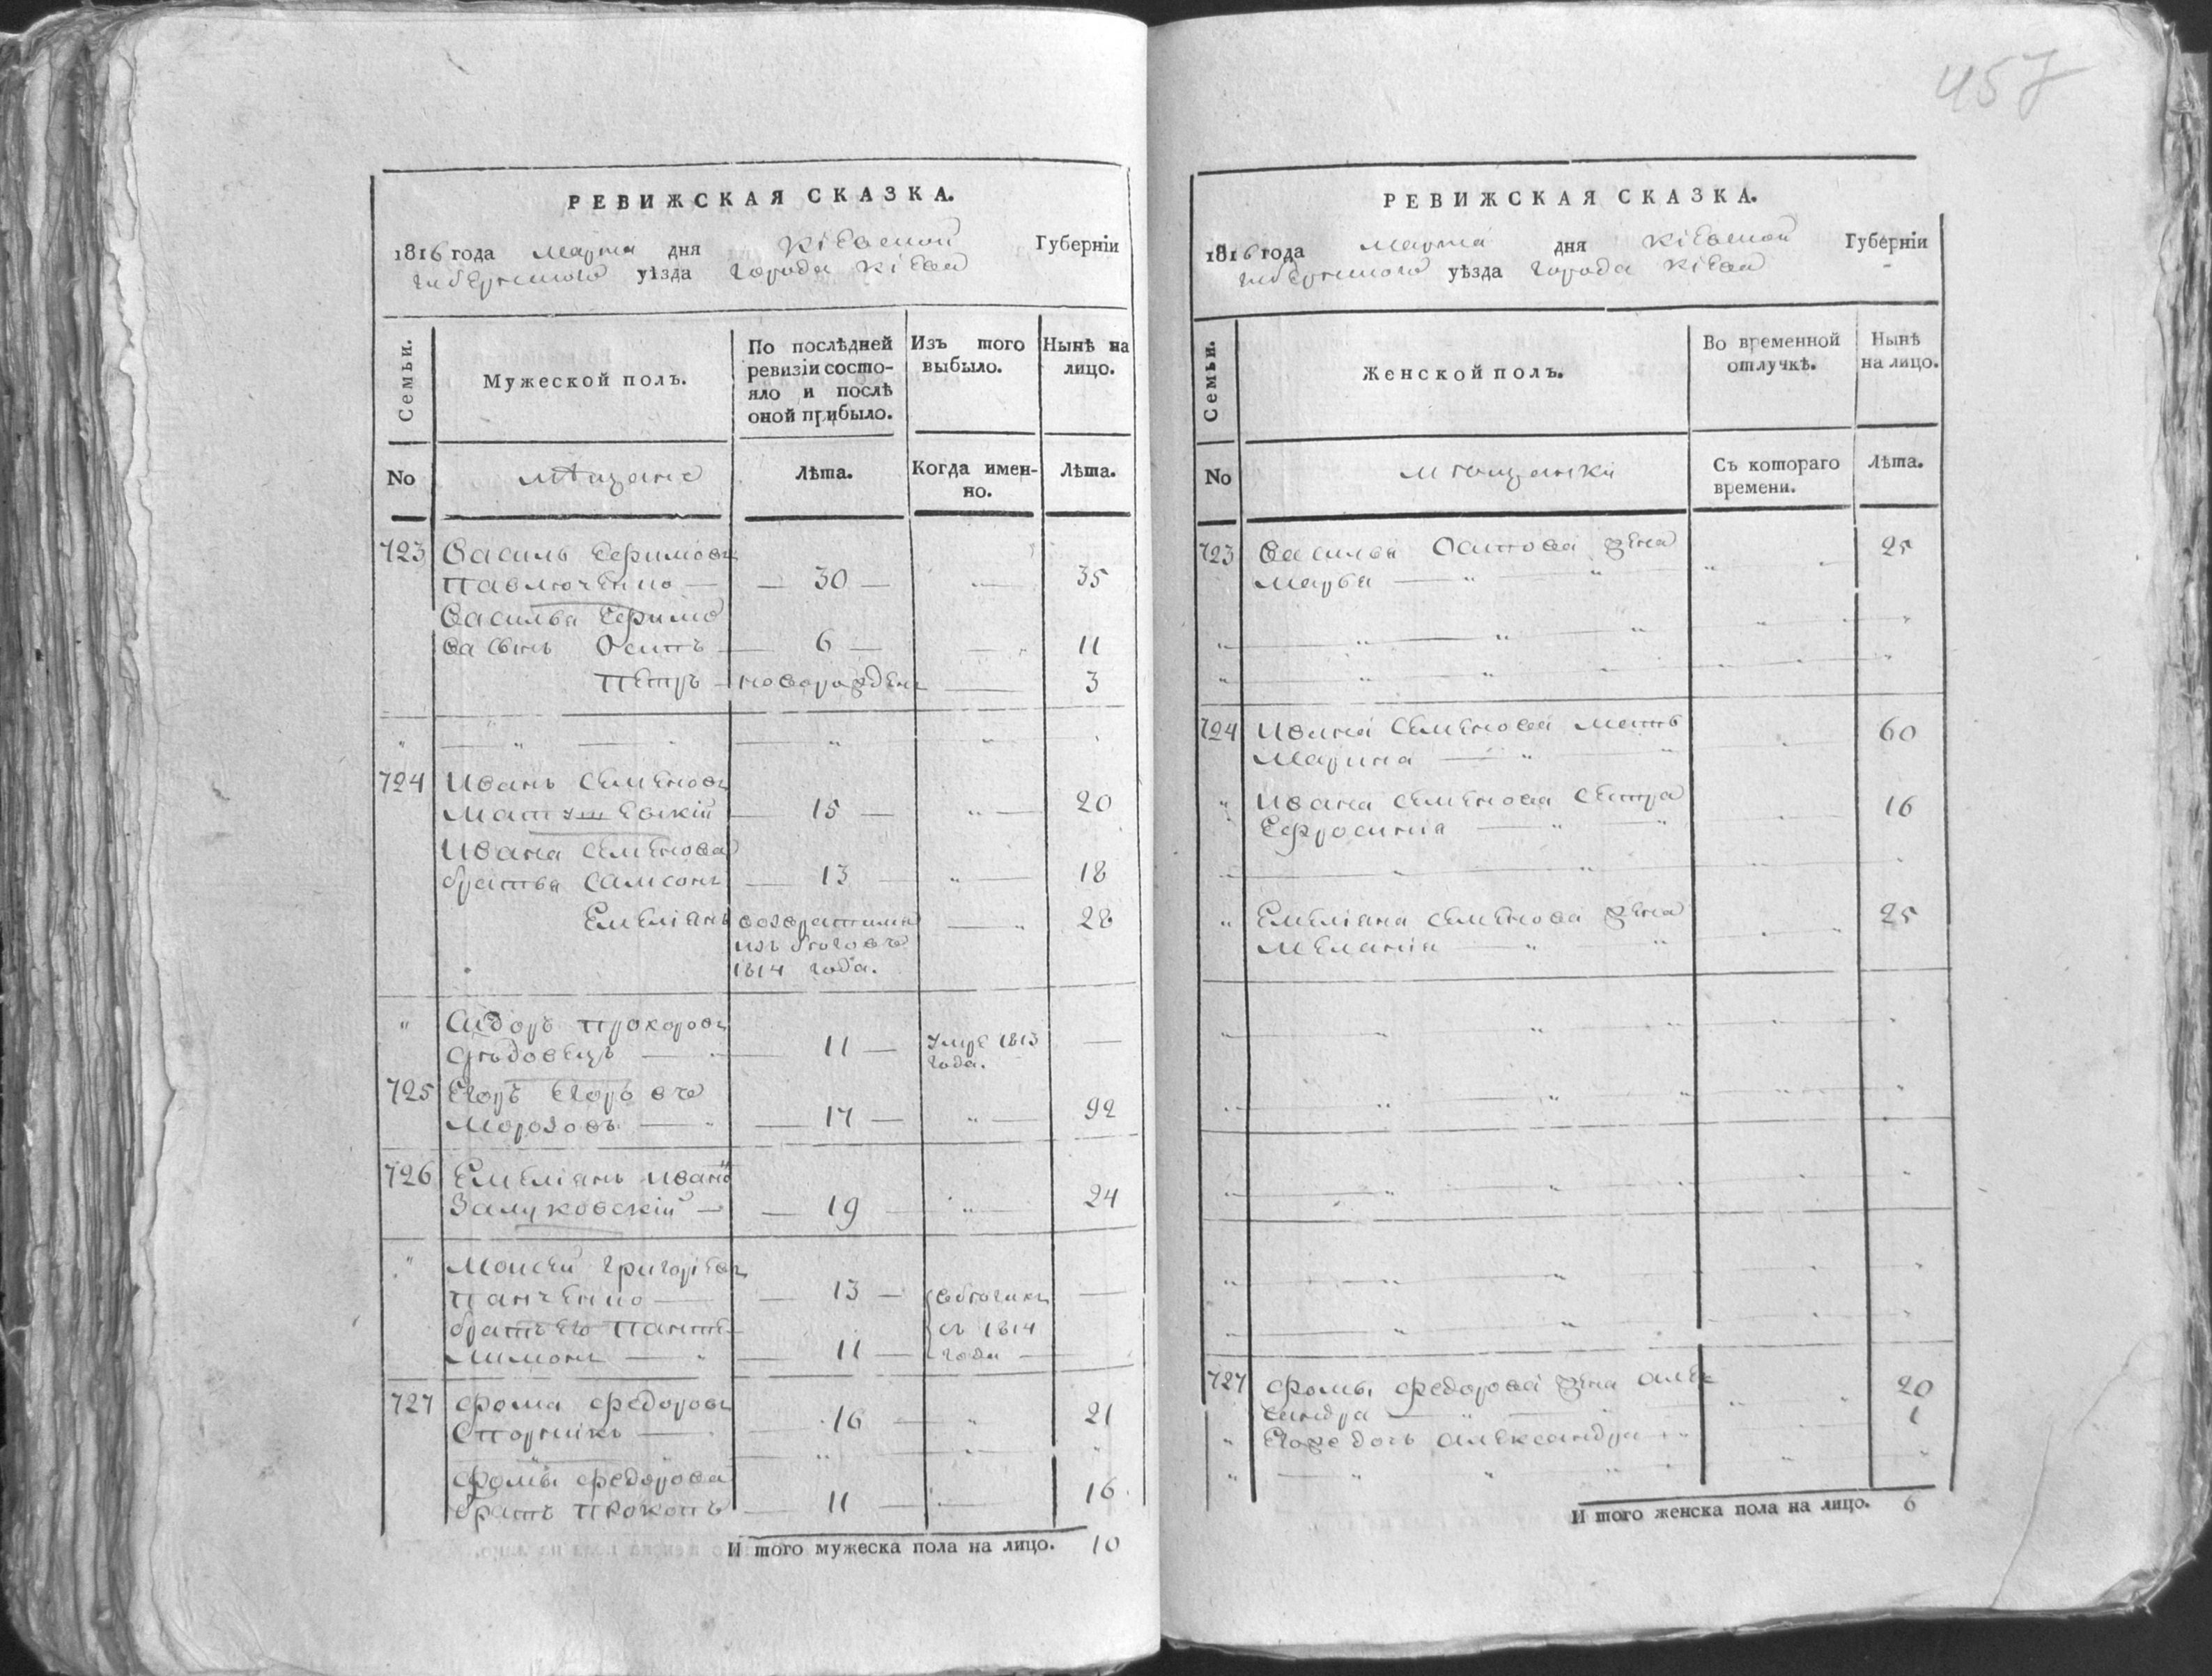 457
РЕВИЖСКАЯ СКАЗКА.
1816 года марта дня Кіевской Губерніи
Губернского уѣзда города Кіева
Семьи.
Мужеской полъ.
По послѣдней ревизіи состо-
яло и послѣ
оной прибыло.
Изъ того
выбыло.
Нынѣ на
лицо.
No
мѣщане
Лѣта.
Когда имен-
но.
Лѣта.
723 Василь Ефимовъ
Павлюченко — 30 — 35
Василья Ефимо
ва сынъ Осипъ — 6 — 11
Петръ — новорожденъ — 3
724 Иванъ Семеновъ
Матушевскій — 15 — 20
Ивана Семенова
братья Самсонъ — 13 — 18
Емеліанъ возвратился — 28
изъ бѣговъ
1814 года.
Сидоръ Прохоровъ
— 11 — умре 1813
года.
725 Егоръ Егоровъ
Морозовъ — 17 — 92
726 Емеліанъ Ивановъ
— 19 — 24
Моисей Григоріевъ
Панченко — 13 —
братъ его Панте-
лимонъ — 11 —
съ 1814
года
727 Фома Федоровъ
— 16 — 21
Фомы Федорова
братъ Прокопъ — 11 — 16
И того мужеска пола на лицо. 10
РЕВИЖСКАЯ СКАЗКА.
1816 года марта дня Кіевской Губерніи
Губернского уѣзда города Кіева
Семьи.
Женской полъ.
Во временной
отлучкѣ.
Нынѣ
на лицо.
No
мѣщанки
Съ котораго
времени.
Лѣта.
723 Василья жена 25
Марфа
724 Ивана Семенова мать 60
Марина
Ивана Семенова сестра 16
Ефросинія
Емеліана Семенова жена 25
Меланія
727 Фомы Федорова жена Алек- 20
сандра
Егоже дочь Александра 1
И того женска пола на лицо. 6